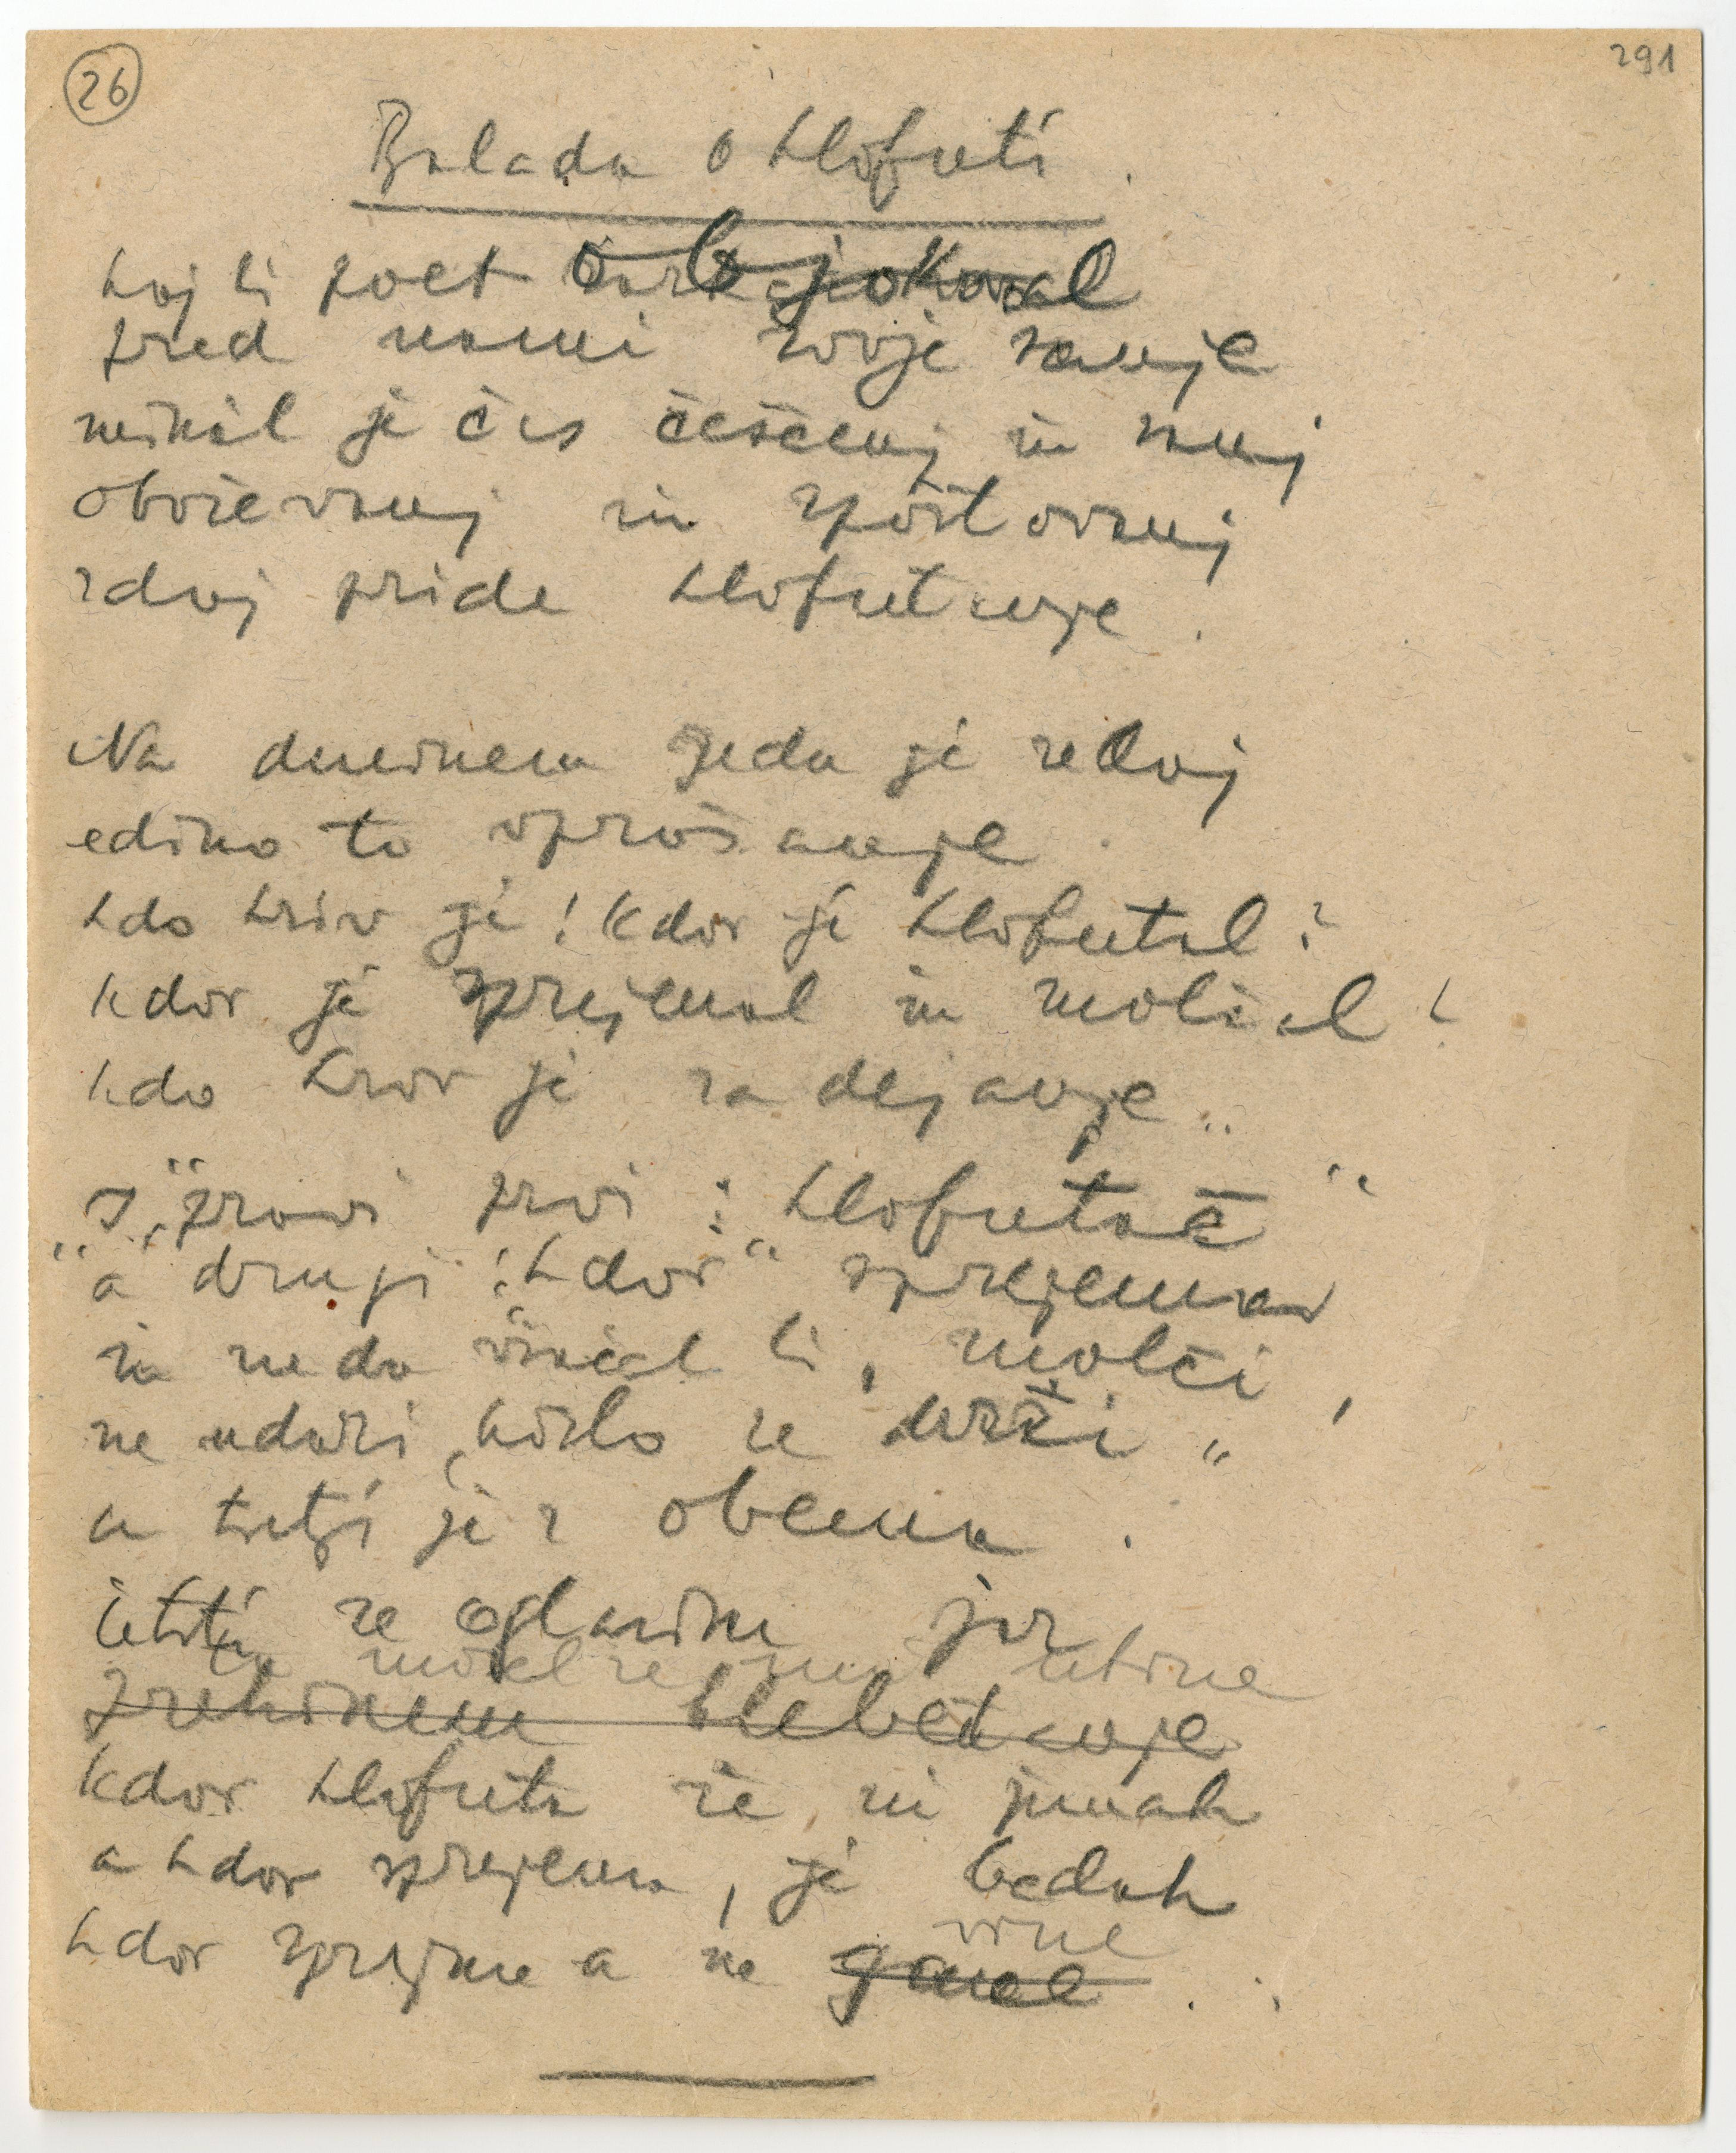 26
291
Balada o klofuti.
kaj bi poet objokoval
pred nami svoje sanje
minil je čas češčenj in sanj
oboževanj in spoštovanj
zdaj pride klofutanje.
Na dnevnem redu je sedaj
edino to vprašanje.
kdo kriv je! Kdor je klofutal?
kdor je sprejemal in molčal?
kdo kriv je za dejanje..
"I," pravi prvi: klofutač"
"a drugi: kdor" sprejema
in ne da vračal bi, molči,
ne udari, kislo se drži"
a tretji je z obema.
četrti se oglasim jaz
kdor klofuta že, ni junak
a kdor sprejema, je bedak
kdor sprejme a ne vrne